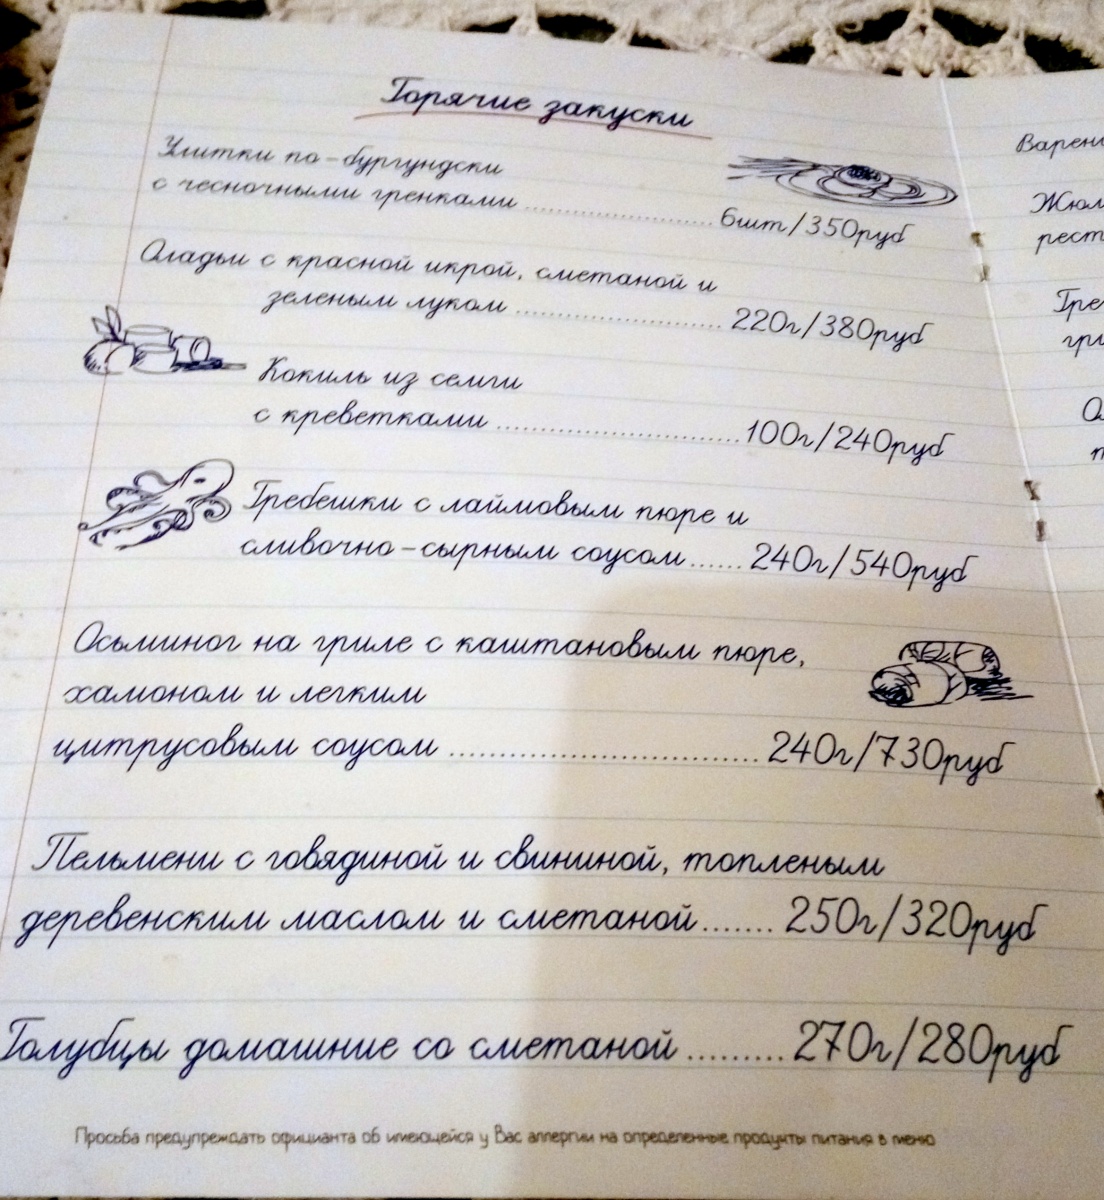 Горячие закуски
Улитки по-бургундски
с чесночными гренками ........................ 6шт/350руб
Оладьи с красной икрой, сметаной и
зеленым луком ........................... 220г/380руб
Кокиль из семги
с креветками ............................... 100г/240руб
Гребешки с лаймовым пюре и
сливочно-сырным соусом ...... 240г/540руб
Осьминог на гриле с каштановым пюре,
хамоном и легким
цитрусовым соусом ................................ 240г/730руб
Пельмени с говядиной и свининой, топленым
деревенским маслом и сметаной ....... 250г/320руб
Голубцы домашние со сметаной ......... 270г/280руб
Просьба предупреждать официанта об имеющейся у Вас аллергии на определенные продукты питания в меню